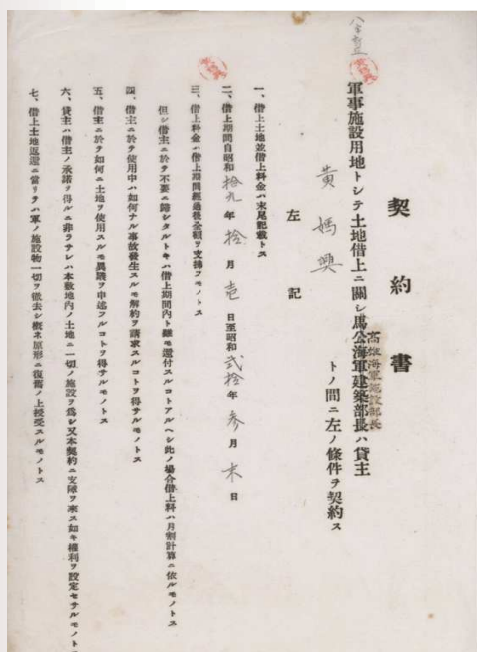 契約書
高雄海軍施設部長
軍事施設用地トシテ土地借上ニ關シ馬公海軍建築部長ハ貸主
黃媽興 トノ間ニ左ノ條件ヲ契約ス
左記
一、借上土地並借上料金ハ末尾記載トス
二、借上期間自昭和拾九年拾月壱日至昭和貳拾年參月末日
三、借上料金ハ借上期間經過後全額ヲ支拂フモノトス
但シ借主ニ於テ不要ニ歸シタルトキハ借上期間内ト雖モ還付スルコトアルヘシ此ノ場合借上料ハ月割計算ニ依ルモノトス
四、借主ニ於テ使用中ハ如何ナル事故發生スルモ解約ヲ請求スルコトヲ得サルモノトス
五、借主ニ於テ如何ニ土地ヲ使用スルモ異議ヲ申述フルコトヲ得サルモノトス
六、貸主ハ借主ノ承諾ヲ得ルニ非ラサレハ本敷地内ノ土地ニ一切ノ施設ヲ爲シ又本契約ニ支障ヲ來ス如キ權利ヲ設定セサルモノトス
七、借上土地返還ニ當リテハ軍ノ施設物一切ヲ撤去シ概ネ原形ニ復舊ノ上授受スルモノトス